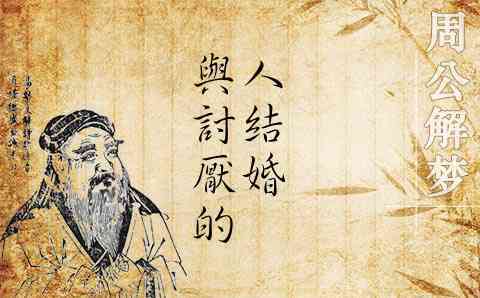 周公解梦
與討厭的
人結婚